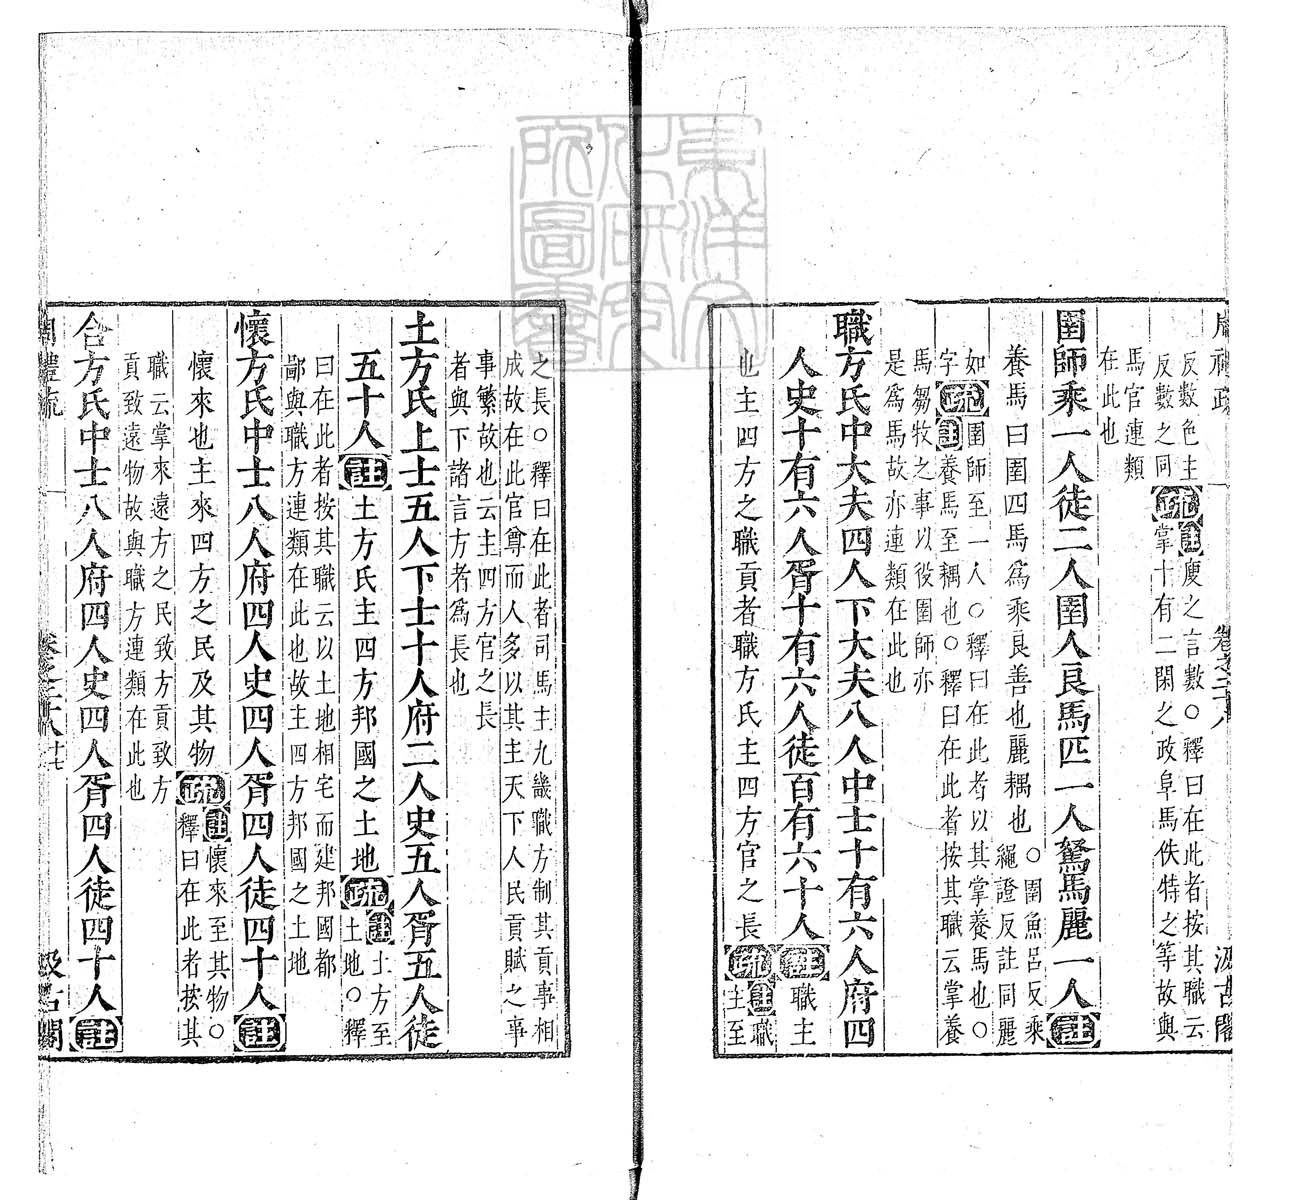 周禮疏 卷之二十八 汲古閣
反數色主
反數之同
疏
註廋之言數○釋曰在此者按其職云
掌十有二閑之政阜馬佚特之等故與
馬官連類
在此也
圉師乘一人徒二人圉人良馬匹一人駑馬麗一人註
養馬曰圉四馬爲乘良善也麗耦也
○圉魚呂反乘
繩證反註同麗
如
字
疏
圉師至一人○釋曰在此者以其掌養馬也○
註養馬至耦也○釋曰在此者按其職云掌養
馬芻牧之事以役圉師亦
是爲馬故亦連類在此也
職方氏中大夫四人下大夫八人中士十有六人府四
人史十有六人胥十有六人徒百有六十人註職主
也主四方之職貢者職方氏主四方官之長疏
註職
主至
之長○釋曰在此者司馬主九畿職方制其貢事相
成故在此官尊而人多以其主天下人民貢賦之事
事繁故也云主四方官之長
者與下諸言方者爲長也
土方氏上士五人下士十人府二人史五人胥五人徒
五十人註土方氏主四方邦國之土地疏
註土方至
土地○釋
曰在此者按其職云以土地相宅而建邦國都
鄙與職方連類在此也故主四方邦國之土地
懷方氏中士八人府四人史四人胥四人徒四十人註
懷來也主來四方之民及其物疏
註懷來至其物○
釋曰在此者按其
職云掌來遠方之民致方貢致方
貢致遠物故與職方連類在此也
合方氏中士八人府四人史四人胥四人徒四十人註
周禮疏 卷之二十八 十七 汲古閣